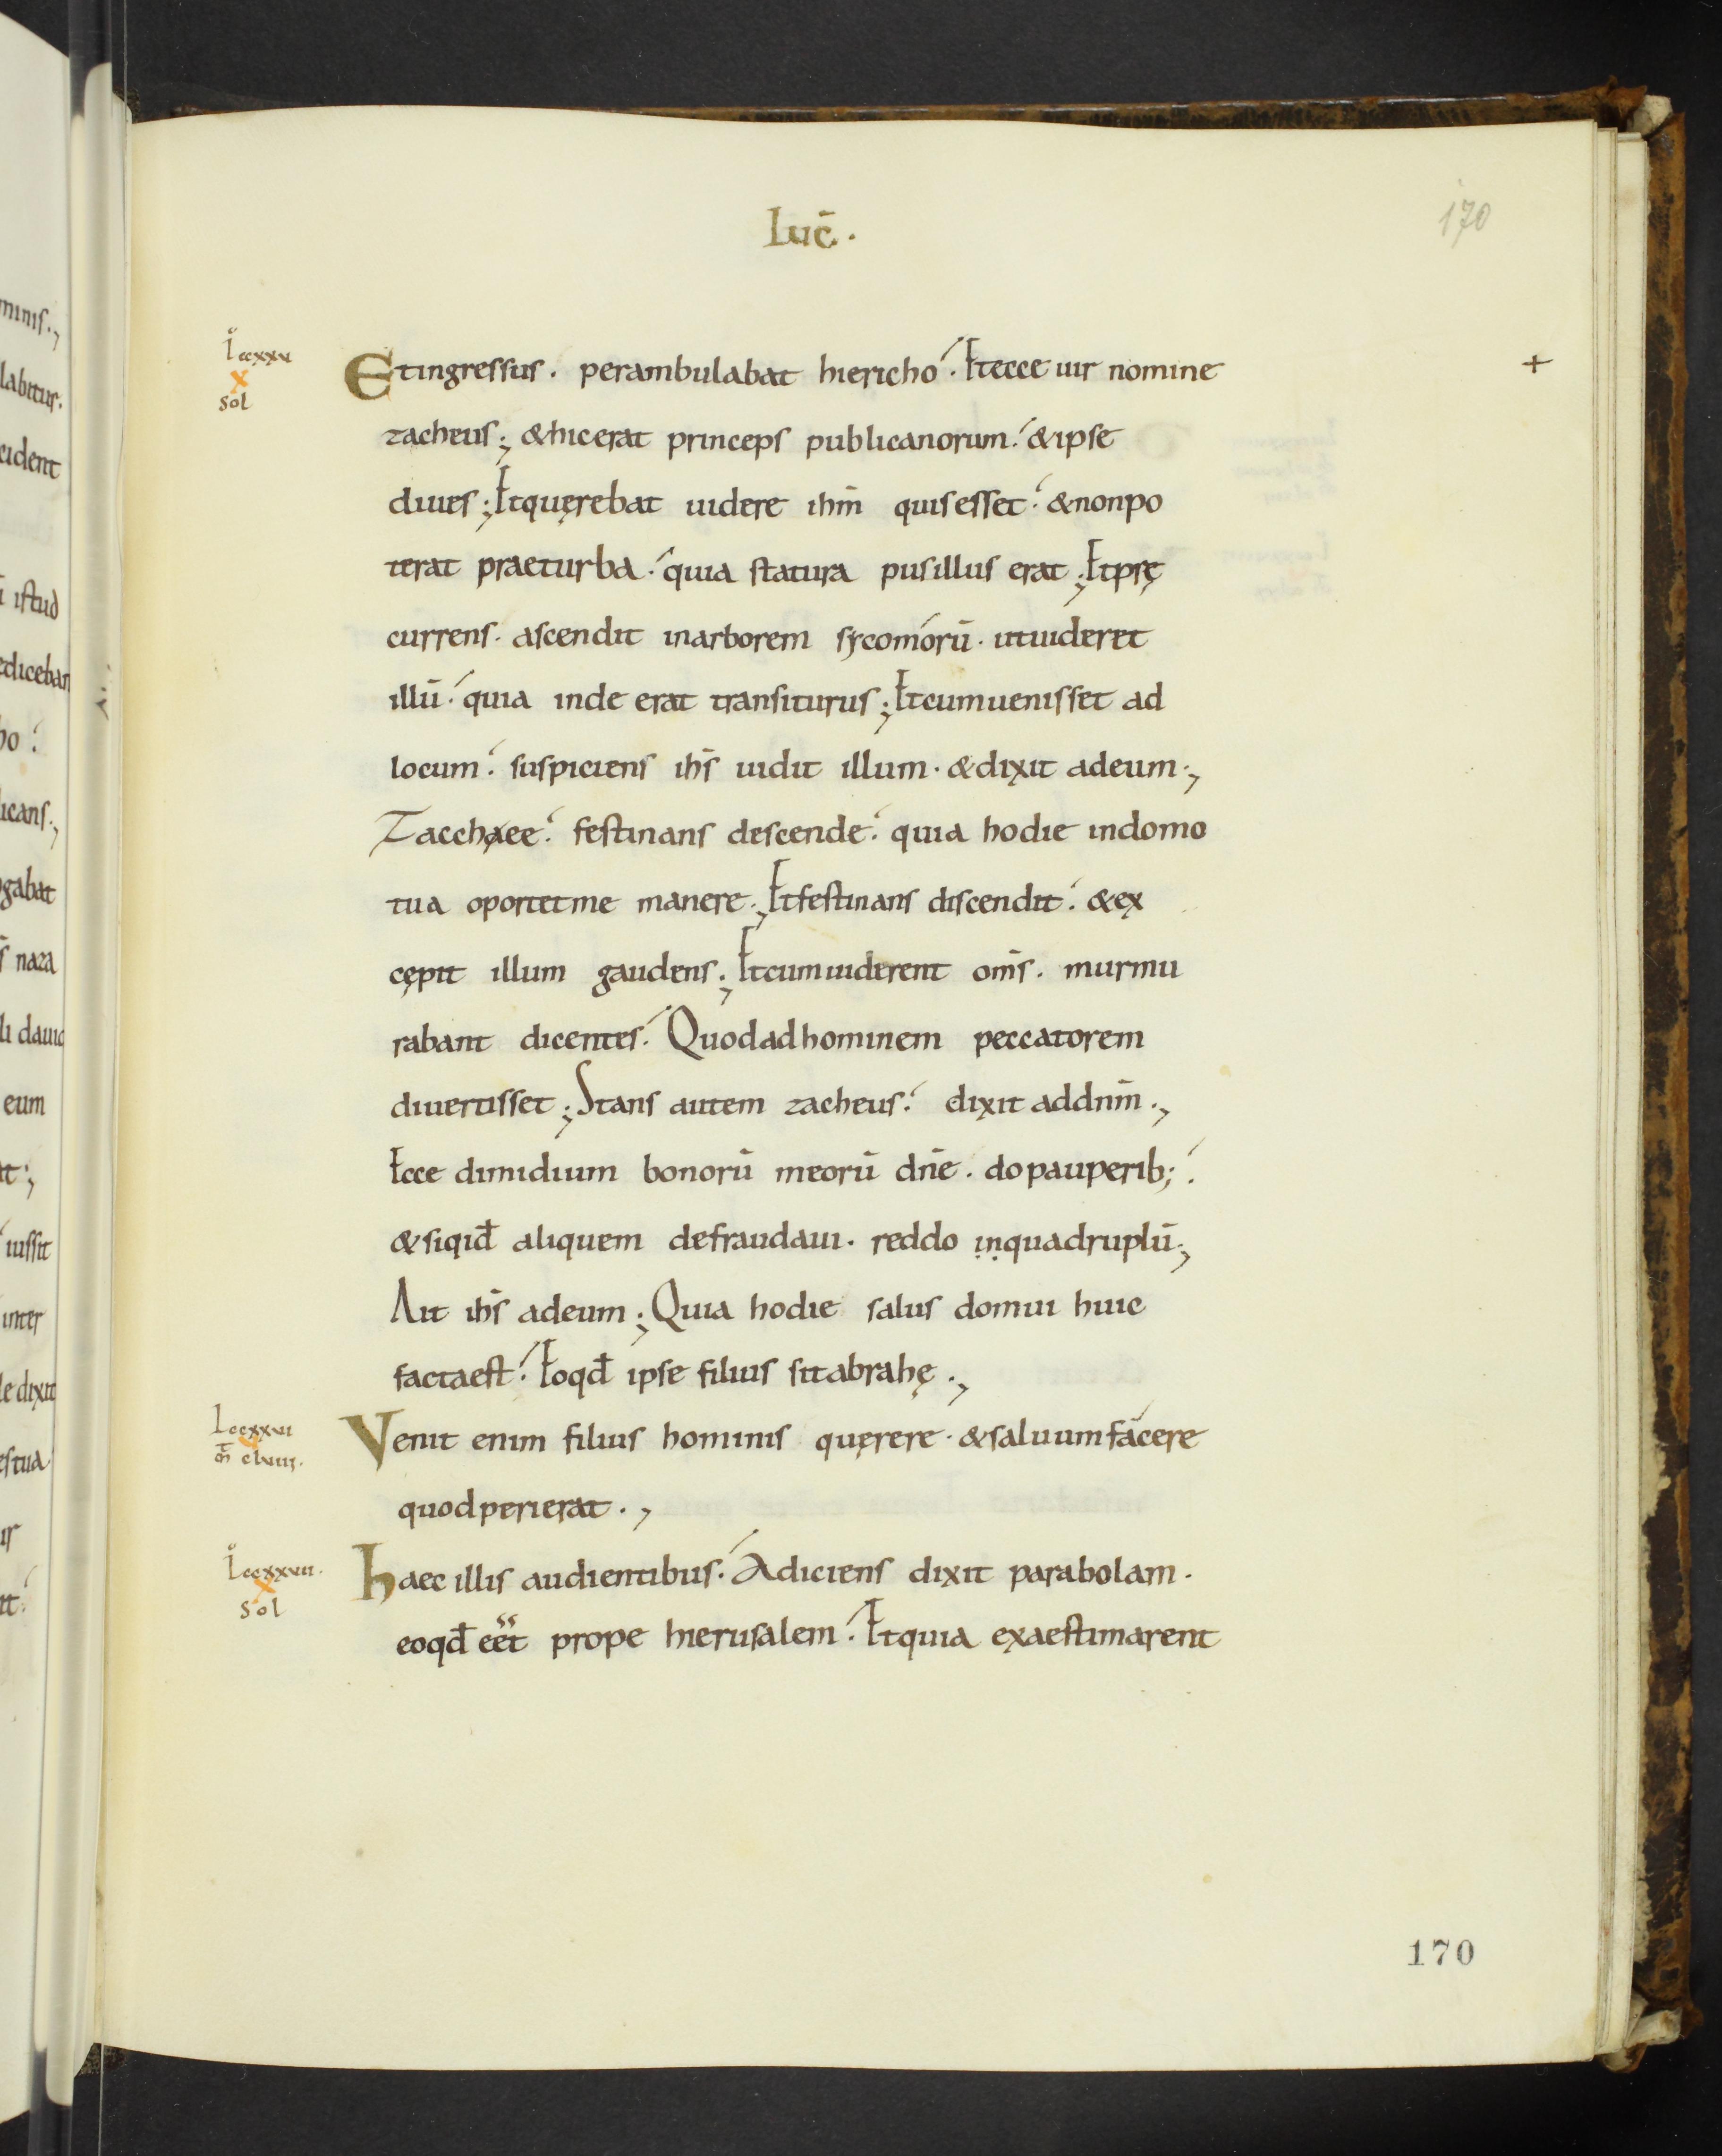 Luc̄.
170
L̊ccxxv
x
sol
Etingressus. perambulabat hiericho. Et ecce uir nomine
+
zacheus; & hic erat princeps publicanorum. & ipse
diues; Et quęrebat uidere ihm̄ quis esset. & non po
terat prae turba. quia statura pusillus erat; Et prę
currens. ascendit in arborem sycomorū. ut uideret
illū. quia inde erat transiturus; Et cum uenisset ad
locum. suspiciens ihs̄ uidit illum. & dixit ad eum.,
Zacchaee. festinans descende. quia hodie in domo
tua oportet me manere., Et festinans discendit. & ex
cępit illum gaudens; Et cum uiderent om̄s. murmu
rabant dicentes. Quod ad hominem peccatorem
diuertisset; Stans autem zacheus. dixit ad dnm̄.,
Ecce dimidium bonorū meorū dn̄e. do pauperib;.
& siqid̄ aliquem defraudaui. reddo inquadruplū.,
Ait ihs̄ ad eum; Quia hodie salus domui huic
facta est. Eo qd̄ ipse filius sit abrahę.,
Lccxxvi
m̄ clviii.
Venit enim filius hominis quęrere. & saluum facere
quod perierat.,
L̊ccxxvii.
x
sol
haec illis audientibus. Adiciens dixit parabolam.
eo qd̄ eet̄ prope hierusalem. Et quia exaestimarent
170